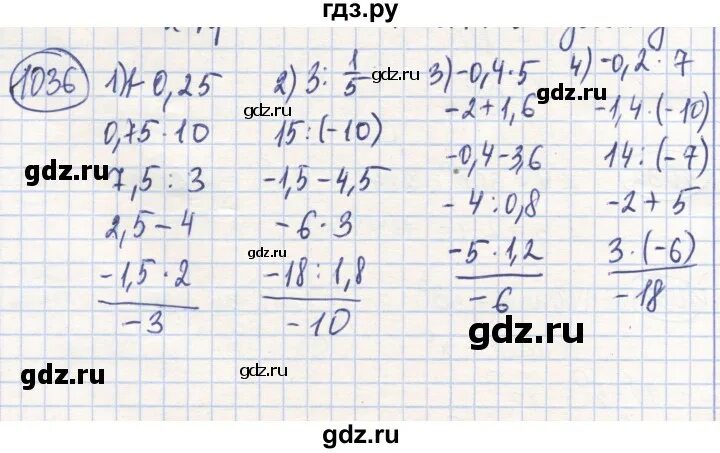 гдз.ру
1036
1) 1-0,25
0,75·10
7,5:3
2,5-4
-1,5·2
-3
2) 3:1/5
15:(-10)
-1,5-4,5
-6·3
-18:1,8
-10
3) -0,4·5
-2+1,6
-0,4-3,6
-4:0,8
-5·1,2
-6
4) -0,2·7
-1,4·(-10)
14:(-7)
-2+5
3·(-6)
-18
gdz.ru
gdz.ru
gdz.ru
gdz.ru
gdz.ru
gdz.ru
gdz.ru
gdz.ru
gdz.ru
gdz.ru